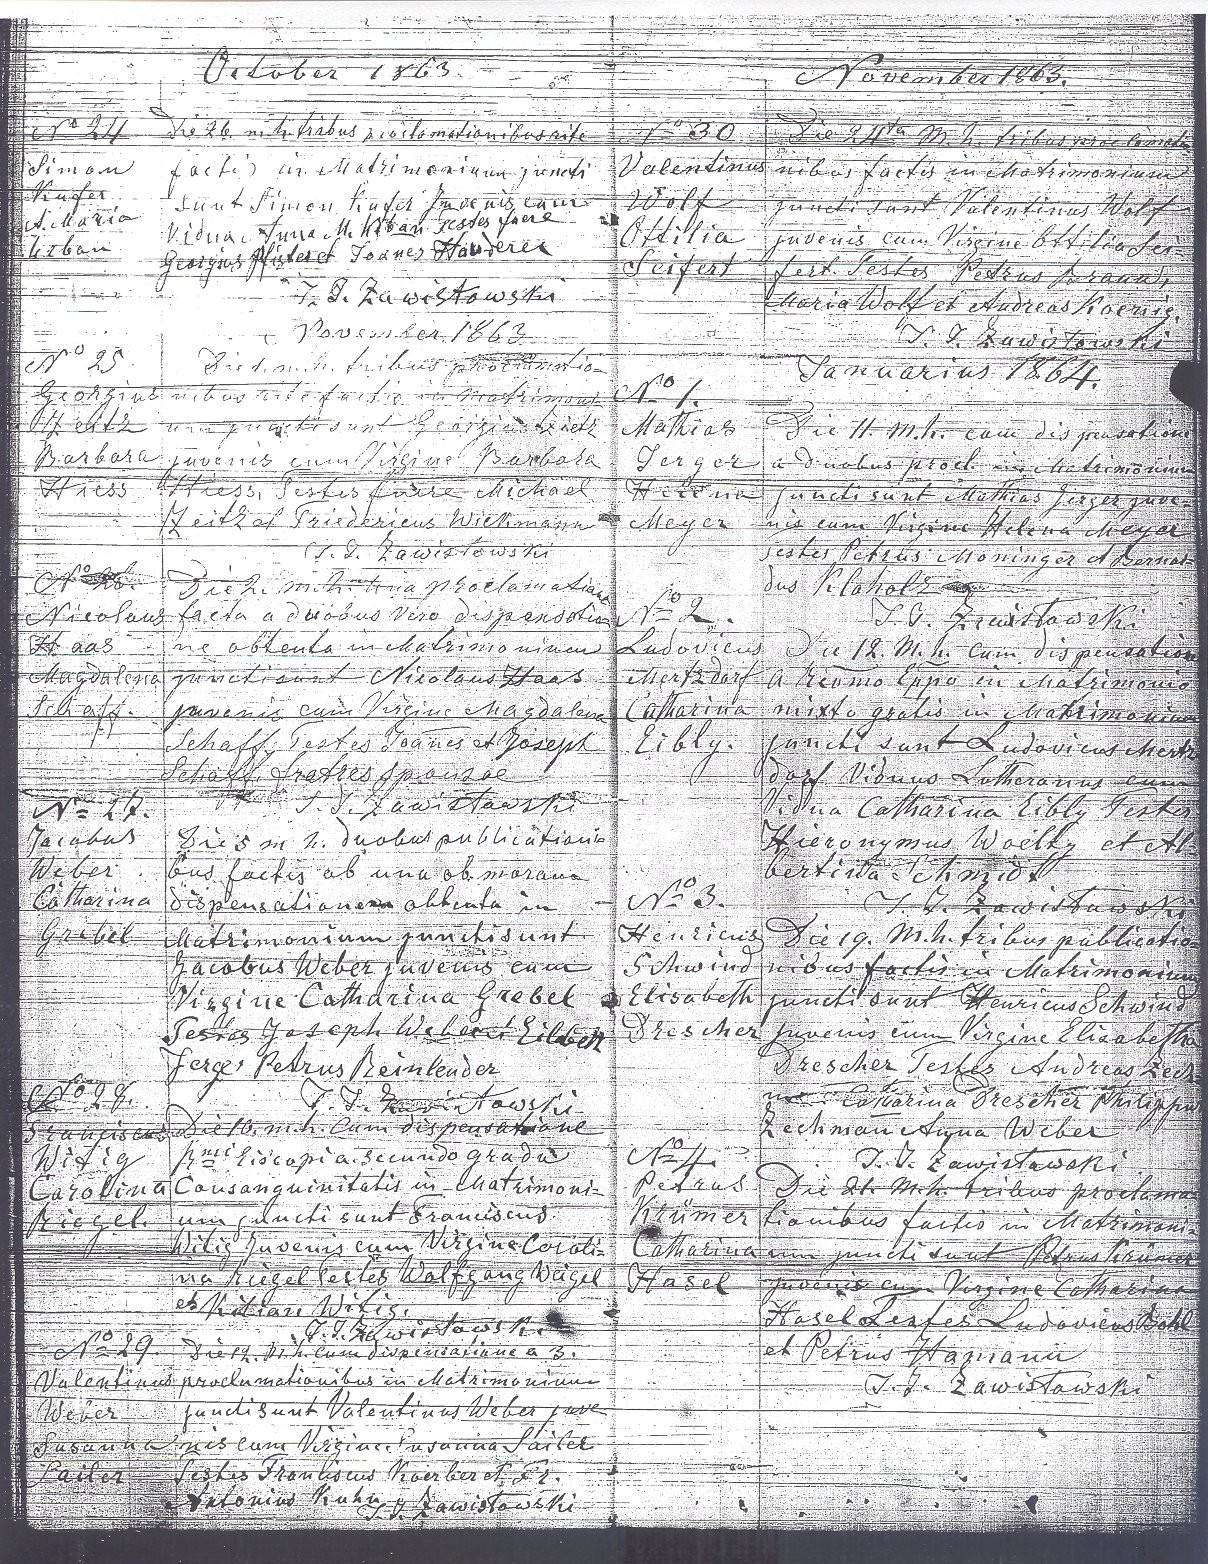 October 1863
No 24
Simon
Kufer
A. Maria
Urban
Die 26. m. h. tribus proclamationibus rite
factis in Matrimonium juncti
sunt Simon Kufer Juvenis cum
Vidua Anna M. Urban Testes fuere
Georgius Pfister et Joanes Hauderer
T. J. Zawistowski
November 1863
No 25
Georgius
Barbara
Hress
Die 1. m. h. tribus proclamatio-
nibus rite factis in Matrimoni-
um juncti sunt Georgius
juvenis cum Virgine Barbara
Hress, Testes fuere Michael
Zeitz et Friedericus Wichmann
T. J. Zawistowski
No 26.
Nicolaus
Haas
Magdalena
Schaff.
Die 2. m. h. una proclamatione
facta a duobus vero dispensatio-
ne obtenta in Matrimonium
juncti sunt Nicolaus Haas
juvenis cum Virgine Magdalena
Schaff, Testes Joanes et Joseph
Schaff, fratres sponsae
T. J. Zawistowski
No 27.
Jacobus
Weber
Catharina
Grebel
Die 5 m. h. duobus publicationi-
bus factis ab una ob moram
dispensationem obtenta in
Matrimonium juncti sunt
Jacobus Weber juvenis cum
Virgine Catharina Grebel
Testes Joseph Weber et
Jerges Petrus Reinlender
T. J. Zawistowski
No 28.
Franciscus
Witig
Carolina
Riegel.
Die 10. m. h. cum dispensatione
Rmi Eiscopi a secundo gradu
Consanguinitatis in Matrimoni-
um juncti sunt Franciscus
Witig Juvenis cum Virgine Caroli-
na Riegel Testes Wolfgang Weigel
et Kilian Witig.
T. J. Zawistowski
No 29.
Valentinus
Weber
Susanna
Sailer
Die 12. m. h. cum dispensatione a 3.
proclamationibus in Matrimonium
juncti sunt Valentinus Weber juve-
nis cum Virgine Susanna Sailer
Testes Franciscus Koerber et Fr.
Antonius Kuhn T. J. Zawistowski
November 1863.
No 30
Valentinus
Wolf
Ottilia
Seifert
Die 24ta m. h. tribus proclamatio-
nibus factis in Matrimonium
juncti sunt Valentinus Wolf
juvenis cum Virgine Ottilia Sei-
fert. Testes Petrus Braun,
Maria Wolf et Andreas Koenig.
T. J. Zawistowski
Januarius 1864.
No 1.
Mathias
Jerger
Helena
Meyer
Die 11. m. h. cum dispensatione
a duobus procl. in Matrimonium
juncti sunt Mathias Jerger juve-
nis cum Virgine Helena Meyer
Testes Petrus Moninger et Bernar-
dus Klaholz
T. J. Zawistowski
No 2.
Ludovicus
Mertzdorf
Catharina
Eibly.
Die 12. m. h. cum dispensation
a Reomo Eppo in Matrimonio
mixto gratis in Matrimonium
juncti sunt Ludovicus Mertz
dorf Viduus Lutheranus cum
Vidua Catharina Eibly Testes
Hieronymus Woelty et Al-
bertina Schmidt
T. J. Zawistowski
No 3.
Henricus
Schwind
Elisabeth
Drescher
Die 19. m. h. tribus publicatio-
nibus factis in Matrimonium
juncti sunt Henricus Schwind
juvenis cum Virgine Elisabetha
Drescher Testes Andreas Zech-
man Catharina Drescher Philippus
Zechman Anna Weber
T. J. Zawistowski
No 4.
Petrus
Krümer
Catharina
Hasel
Die 21. m. h. tribus proclama-
tionibus factis in Matrimoni-
um juncti sunt Petrus Krümer
juvenis cum Virgine Catharina
Hasel Testes Ludovicus Bohl
et Petrus Hamann
T. J. Zawistowski